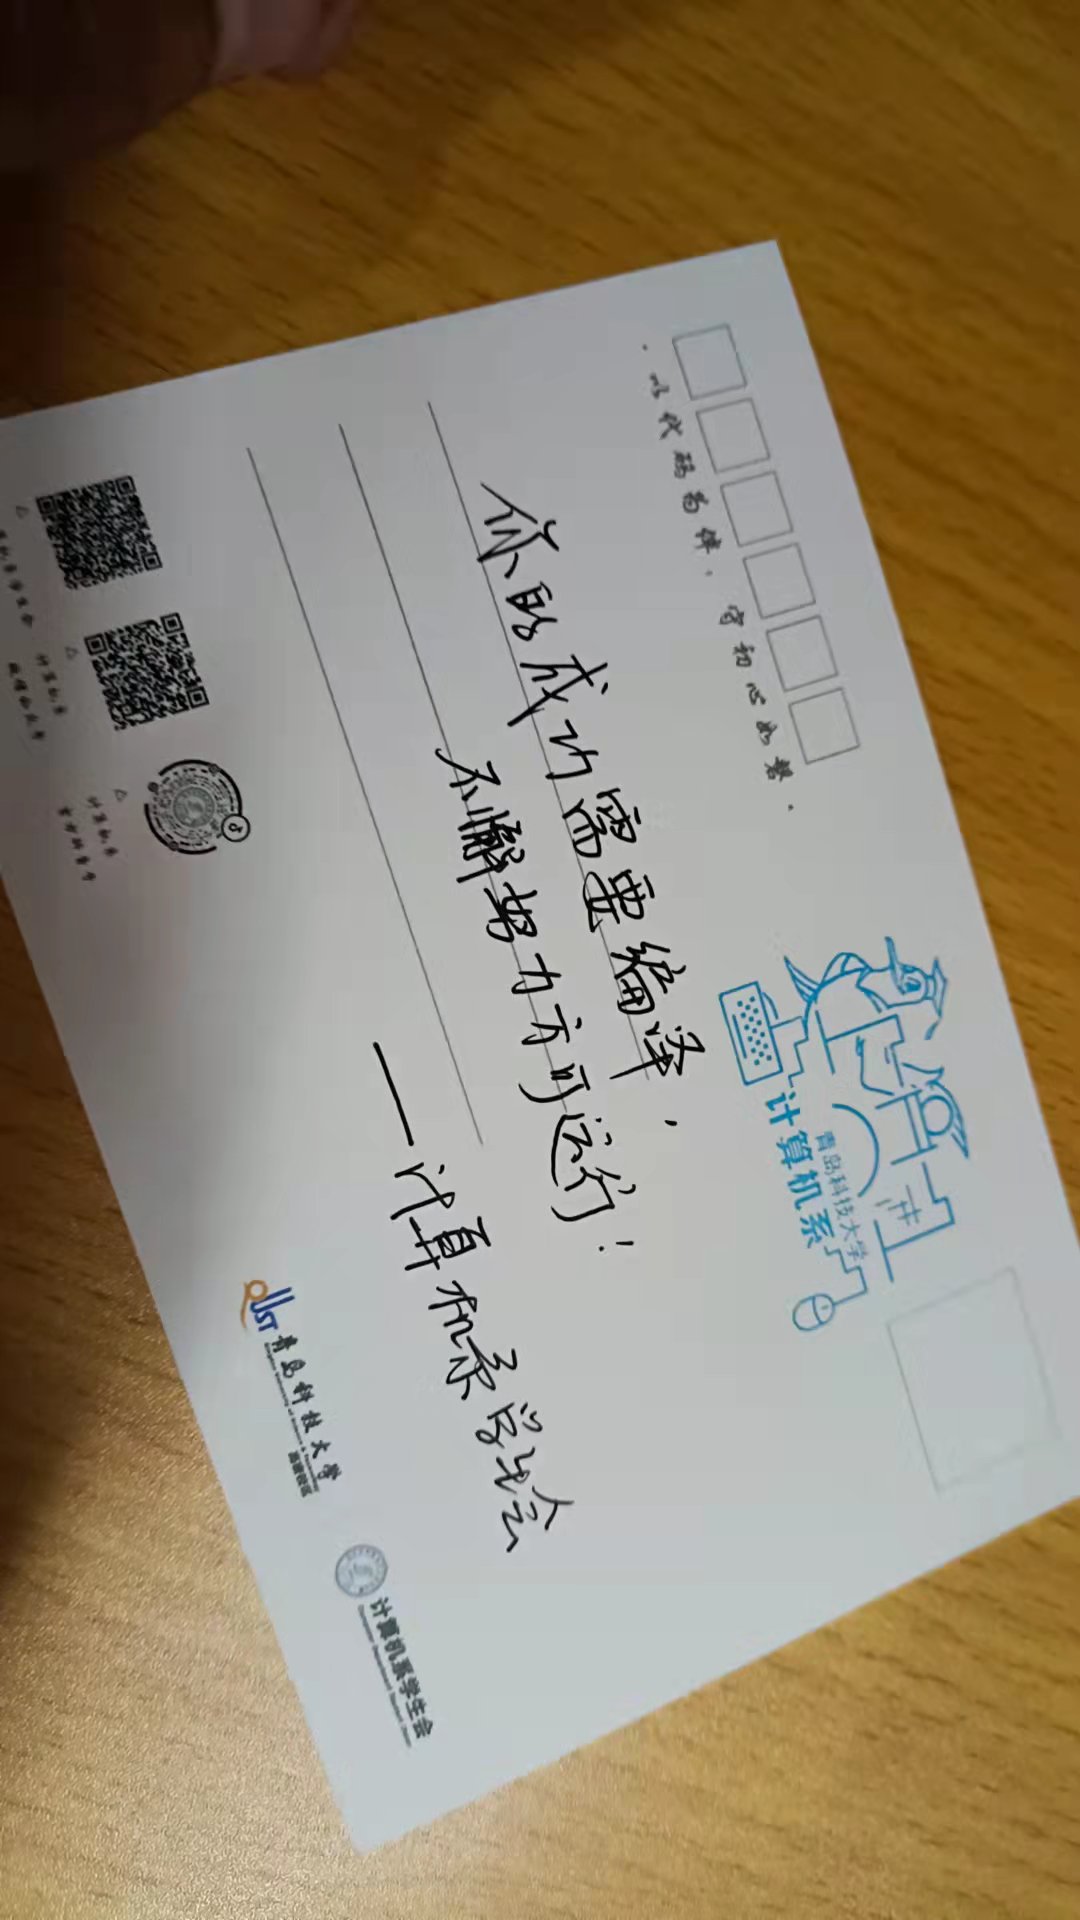 青岛科技大学
计算机系
·以代码为伴,守初心如磐·
你的成功需要编译,
不懈努力方可运行!
—计算机系学生会
计算机系学生会
Computer Department Student Union
QUST 青岛科技大学
Qingdao University of Science & Technology
高密校区
机系学生会
计算机系
微信公众号
计算机系
官方抖音号